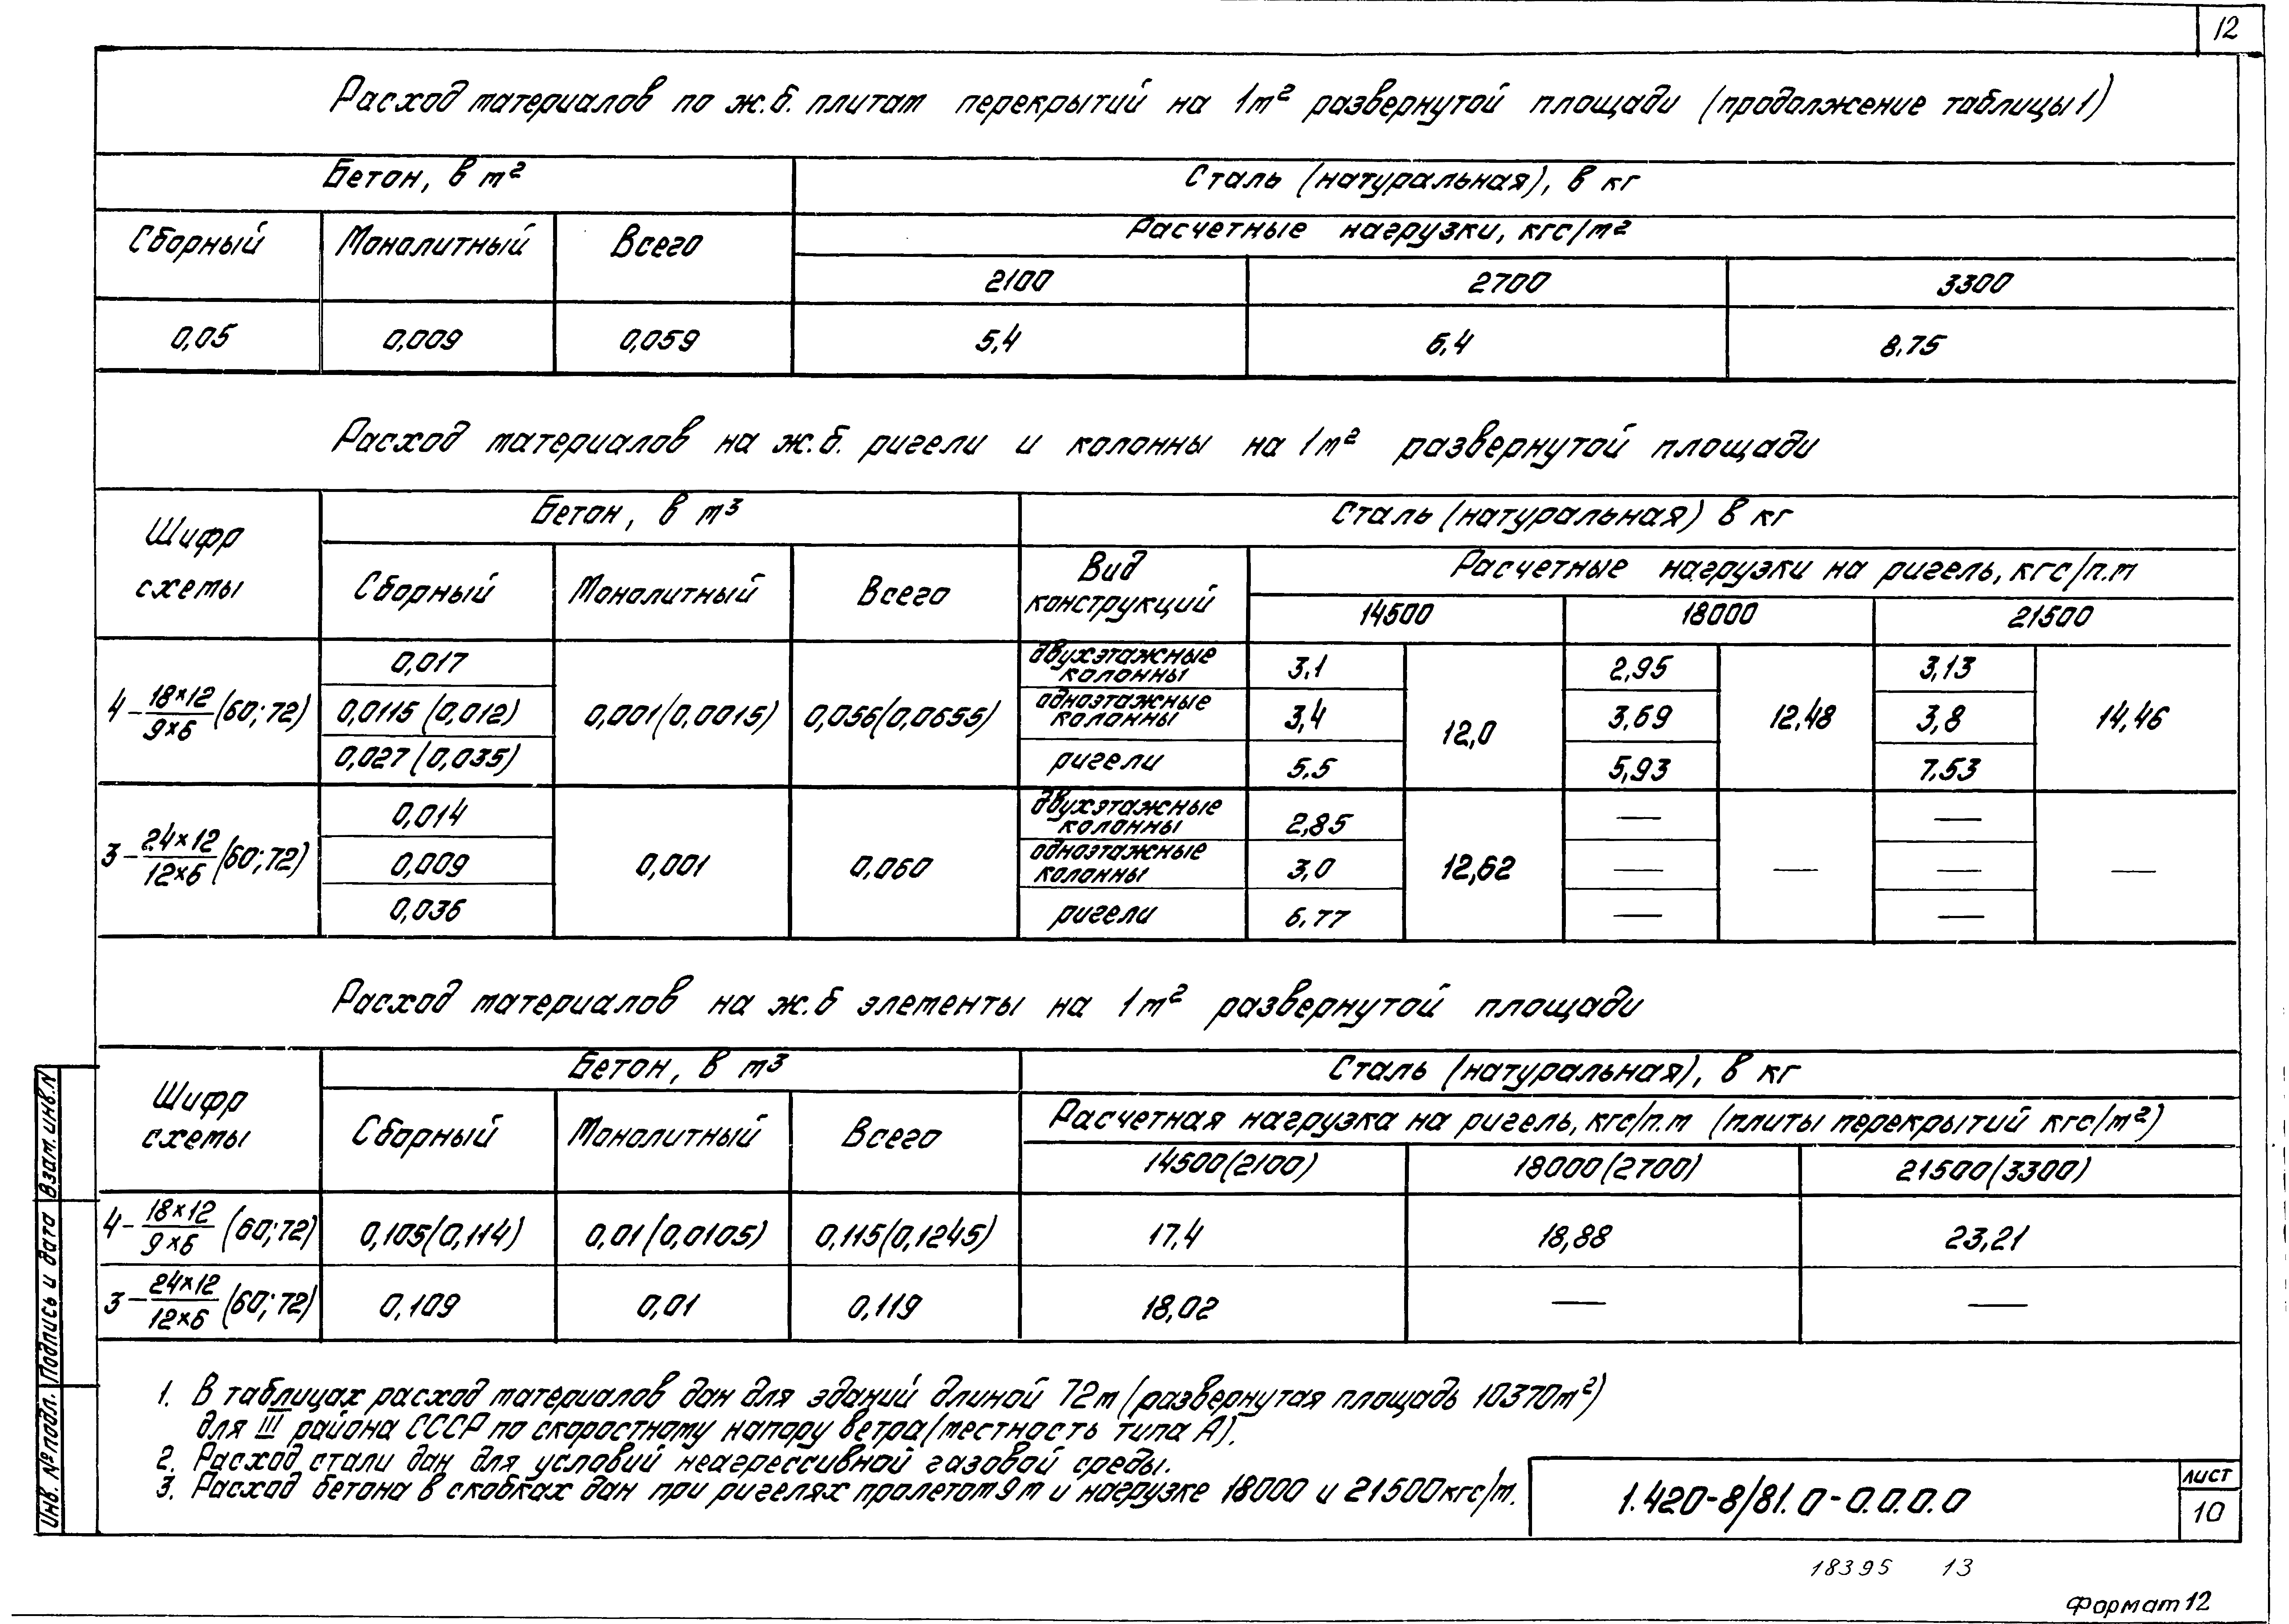 12
Расход материалов по ж.б. плитам перекрытий на 1м² развернутой площади (продолжение таблицы 1)
Бетон, в м²
Сталь (натуральная), в кг
Сборный
Монолитный
Всего
Расчетные нагрузки, кгс/м²
2100
2700
3300
0,05
0,009
0,059
5,4
6,4
8.75
Расход материалов на ж.б. ригели и колонны на 1м² развернутой площади
Шифр схемы
Бетон, в м³
Сталь (натуральная) в кг
Сборный
Монолитный
Всего
Вид конструкций
Расчетные нагрузки на ригель, кгс/п.м
14500
18000
21500
4-18×12/9×6(60;72)
0,017
0,0115 (0,012)
0,027 (0,035)
0,001(0,0015)
0,056(0,0655)
двухэтажные колонны
3.1
2,95
3,13
одноэтажные колонны
3,4
12,0
3,69
12,48
3,8
14,46
ригели
5.5
5,93
7.53
3-24×12/12×6(60;72)
0,014
0,009
0,036
0,001
0,060
двухэтажные колонны
2,85
—
—
одноэтажные колонны
3,0
12,62
—
—
—
—
ригели
6.77
—
—
Расход материалов на ж.б элементы на 1м² развернутой площади
Шифр схемы
Бетон, в м³
Сталь (натуральная), в кг
Сборный
Монолитный
Всего
Расчетная нагрузка на ригель, кгс/п.м (плиты перекрытий кгс/м²)
14500(2100)
18000(2700)
21500(3300)
4-18×12/9×6 (60;72)
0,105(0,114)
0,01(0,0105)
0,115(0,1245)
17,4
18,88
23,21
3-24×12/12×6 (60;72)
0,109
0,01
0,119
18,02
—
—
1. В таблицах расход материалов дан для зданий длиной 72м (развернутая площадь 10370м²)
для III района СССР по скоростному напору ветра (местность типа А).
2. Расход стали дан для условий неагрессивной газовой среды.
3. Расход бетона в скобках дан при ригелях пролетом 9м и нагрузке 18000 и 21500кгс/м.
1.420-8/81.0-0.0.0.0
лист
10
Инв. № подл.
Подпись и дата
Взам. инв. N
18395 13
Формат 12